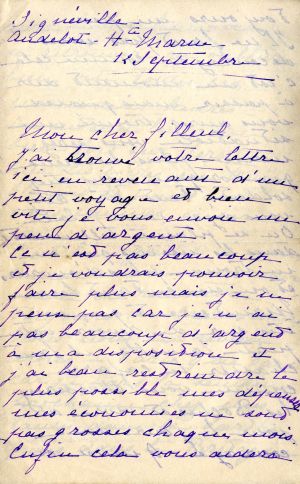 Signéville
Andelot - Hte Marne
12 Septembre
Mon cher filleul,
J'ai trouvé votre lettre
ici en revenant d'un
petit voyage et bien
vite je vous envoie un
peu d'argent.
Ce n'est pas beaucoup
et je voudrais pouvoir
faire plus mais je ne
peux pas car je n'ai
pas beaucoup d'argent
à ma disposition et
j'ai beau restreindre le
plus possible mes dépenses
mes économies ne sont
pas grosses chaque mois.
Enfin cela vous aidera